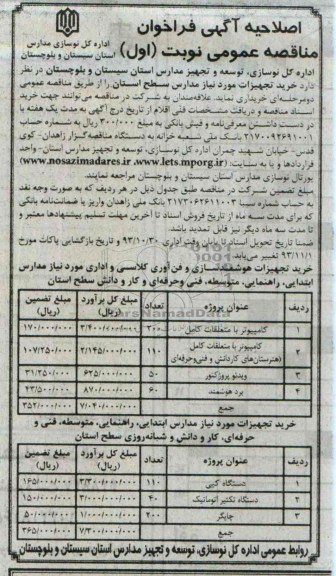 اصلاحیه آگهی فراخوان
مناقصه عمومی نوبت (اول)
اداره کل نوسازی مدارس
استان سیستان و بلوچستان
اداره کل نوسازی، توسعه و تجهیز مدارس استان سیستان و بلوچستان در نظر
دارد خرید تجهیزات مورد نیاز مدارس سطح استان را از طریق مناقصه عمومی
دومرحله‌ای خریداری نماید. علاقه‌مندان به شرکت در مناقصه می‌توانند جهت خرید
اسناد مناقصه و دریافت مشخصات فنی اقلام از تاریخ درج آگهی به مدت یک هفته با
در دست داشتن معرفی‌نامه و فیش بانکی به مبلغ ۳۰۰/۰۰۰ ریال به شماره حساب
۲۱۷۰۰۹۴۶۹۱۰۰۱ بانک ملی شعبه خزانه به دستگاه مناقصه‌گزار زاهدان- کوی
قدس- خیابان شهید چمران اداره کل نوسازی، توسعه و تجهیز مدارس استان- واحد
قراردادها و یا به سایت: (www.nosazimadares.ir ،www.iets.mporg.ir)
پورتال نوسازی مدارس استان سیستان و بلوچستان مراجعه نمایند.
مبلغ تضمین شرکت در مناقصه طبق جدول ذیل در هر ردیف که به صورت وجه نقد
به حساب شماره سیبا ۲۱۷۳۰۶۲۶۱۱۰۰۳ بانک ملی زاهدان واریز یا ضمانت‌نامه بانکی
که برای مدت سه ماه از تاریخ فروش اسناد تا آخرین مهلت تسلیم پیشنهادها معتبر و
تا مدت سه ماه دیگر نیز قابل تمدید باشد.
ضمنا تاریخ تحویل اسناد تا پایان وقت اداری ۹۳/۱۰/۳۰ و تاریخ بازگشایی پاکات مورخ
۹۳/۱۱/۱ تغییر می‌یابد.
خرید تجهیزات هوشمندسازی و فن‌آوری کلاسی و اداری مورد نیاز مدارس
ابتدایی، راهنمایی، متوسطه، فنی وحرفه‌ای و کار و دانش سطح استان
ردیف عنوان پروژه تعداد مبلغ کل برآورد (ریال) مبلغ تضمین (ریال)
۱ کامپیوتر با متعلقات کامل ۳۰۰ ۳/۴۰۰/۰۰۰/۰۰۰ ۱۷۰/۰۰۰/۰۰۰
۲ کامپیوتر با متعلقات کامل (هنرستان‌های کاردانش و فنی‌وحرفه‌ای) ۱۱۰ ۲/۱۴۵/۰۰۰/۰۰۰ ۱۰۷/۲۵۰/۰۰۰
۳ ویدئو پروژکتور ۵۰ ۶۲۵/۰۰۰/۰۰۰ ۳۱/۲۵۰/۰۰۰
۴ برد هوشمند ۶۰ ۸۷۰/۰۰۰/۰۰۰ ۴۳/۵۰۰/۰۰۰
جمع ۷/۰۴۰/۰۰۰/۰۰۰ ۳۵۲/۰۰۰/۰۰۰
خرید تجهیزات مورد نیاز مدارس ابتدایی، راهنمایی، متوسطه، فنی و
حرفه‌ای، کار و دانش و شبانه‌روزی سطح استان
ردیف عنوان پروژه تعداد مبلغ کل برآورد (ریال) مبلغ تضمین (ریال)
۱ دستگاه کپی ۱۱۰ ۳/۳۰۰/۰۰۰/۰۰۰ ۱۶۵/۰۰۰/۰۰۰
۲ دستگاه تکثیر اتوماتیک ۴۰ ۳/۰۰۰/۰۰۰/۰۰۰ ۱۵۰/۰۰۰/۰۰۰
۳ چاپگر ۲۰۰ ۱/۰۰۰/۰۰۰/۰۰۰ ۵۰/۰۰۰/۰۰۰
جمع ۷/۳۰۰/۰۰۰/۰۰۰ ۳۶۵/۰۰۰/۰۰۰
روابط عمومی اداره کل نوسازی، توسعه و تجهیز مدارس استان سیستان و بلوچستان